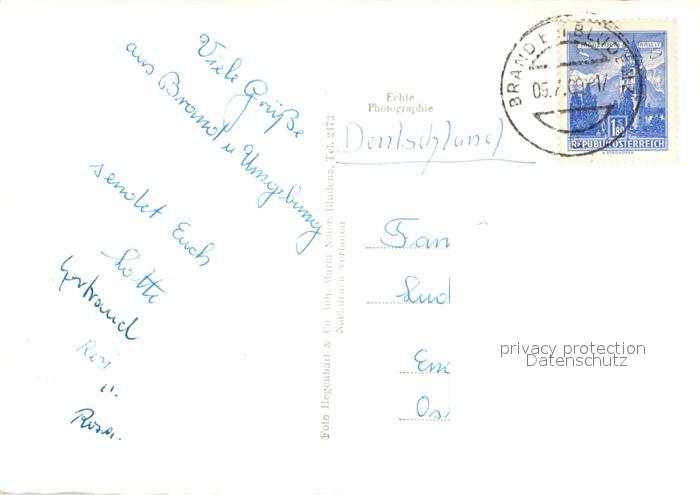 Viele Grüße
aus Brand u Umgebung
sendet Euch
Lotte
Gertraud
Resi
u.
Rosa.
Foto Hegenbart & Co. Inh. Maria Naier, Bludenz, Tel. 2472
Nachdruck verboten
Echte
Photographie
Deutschland
Fam
Lud
Em
Os
BRAND BLUDENZ
05.7.69-17
1.80
REPUBLIK ÖSTERREICH
privacy protection
Datenschutz